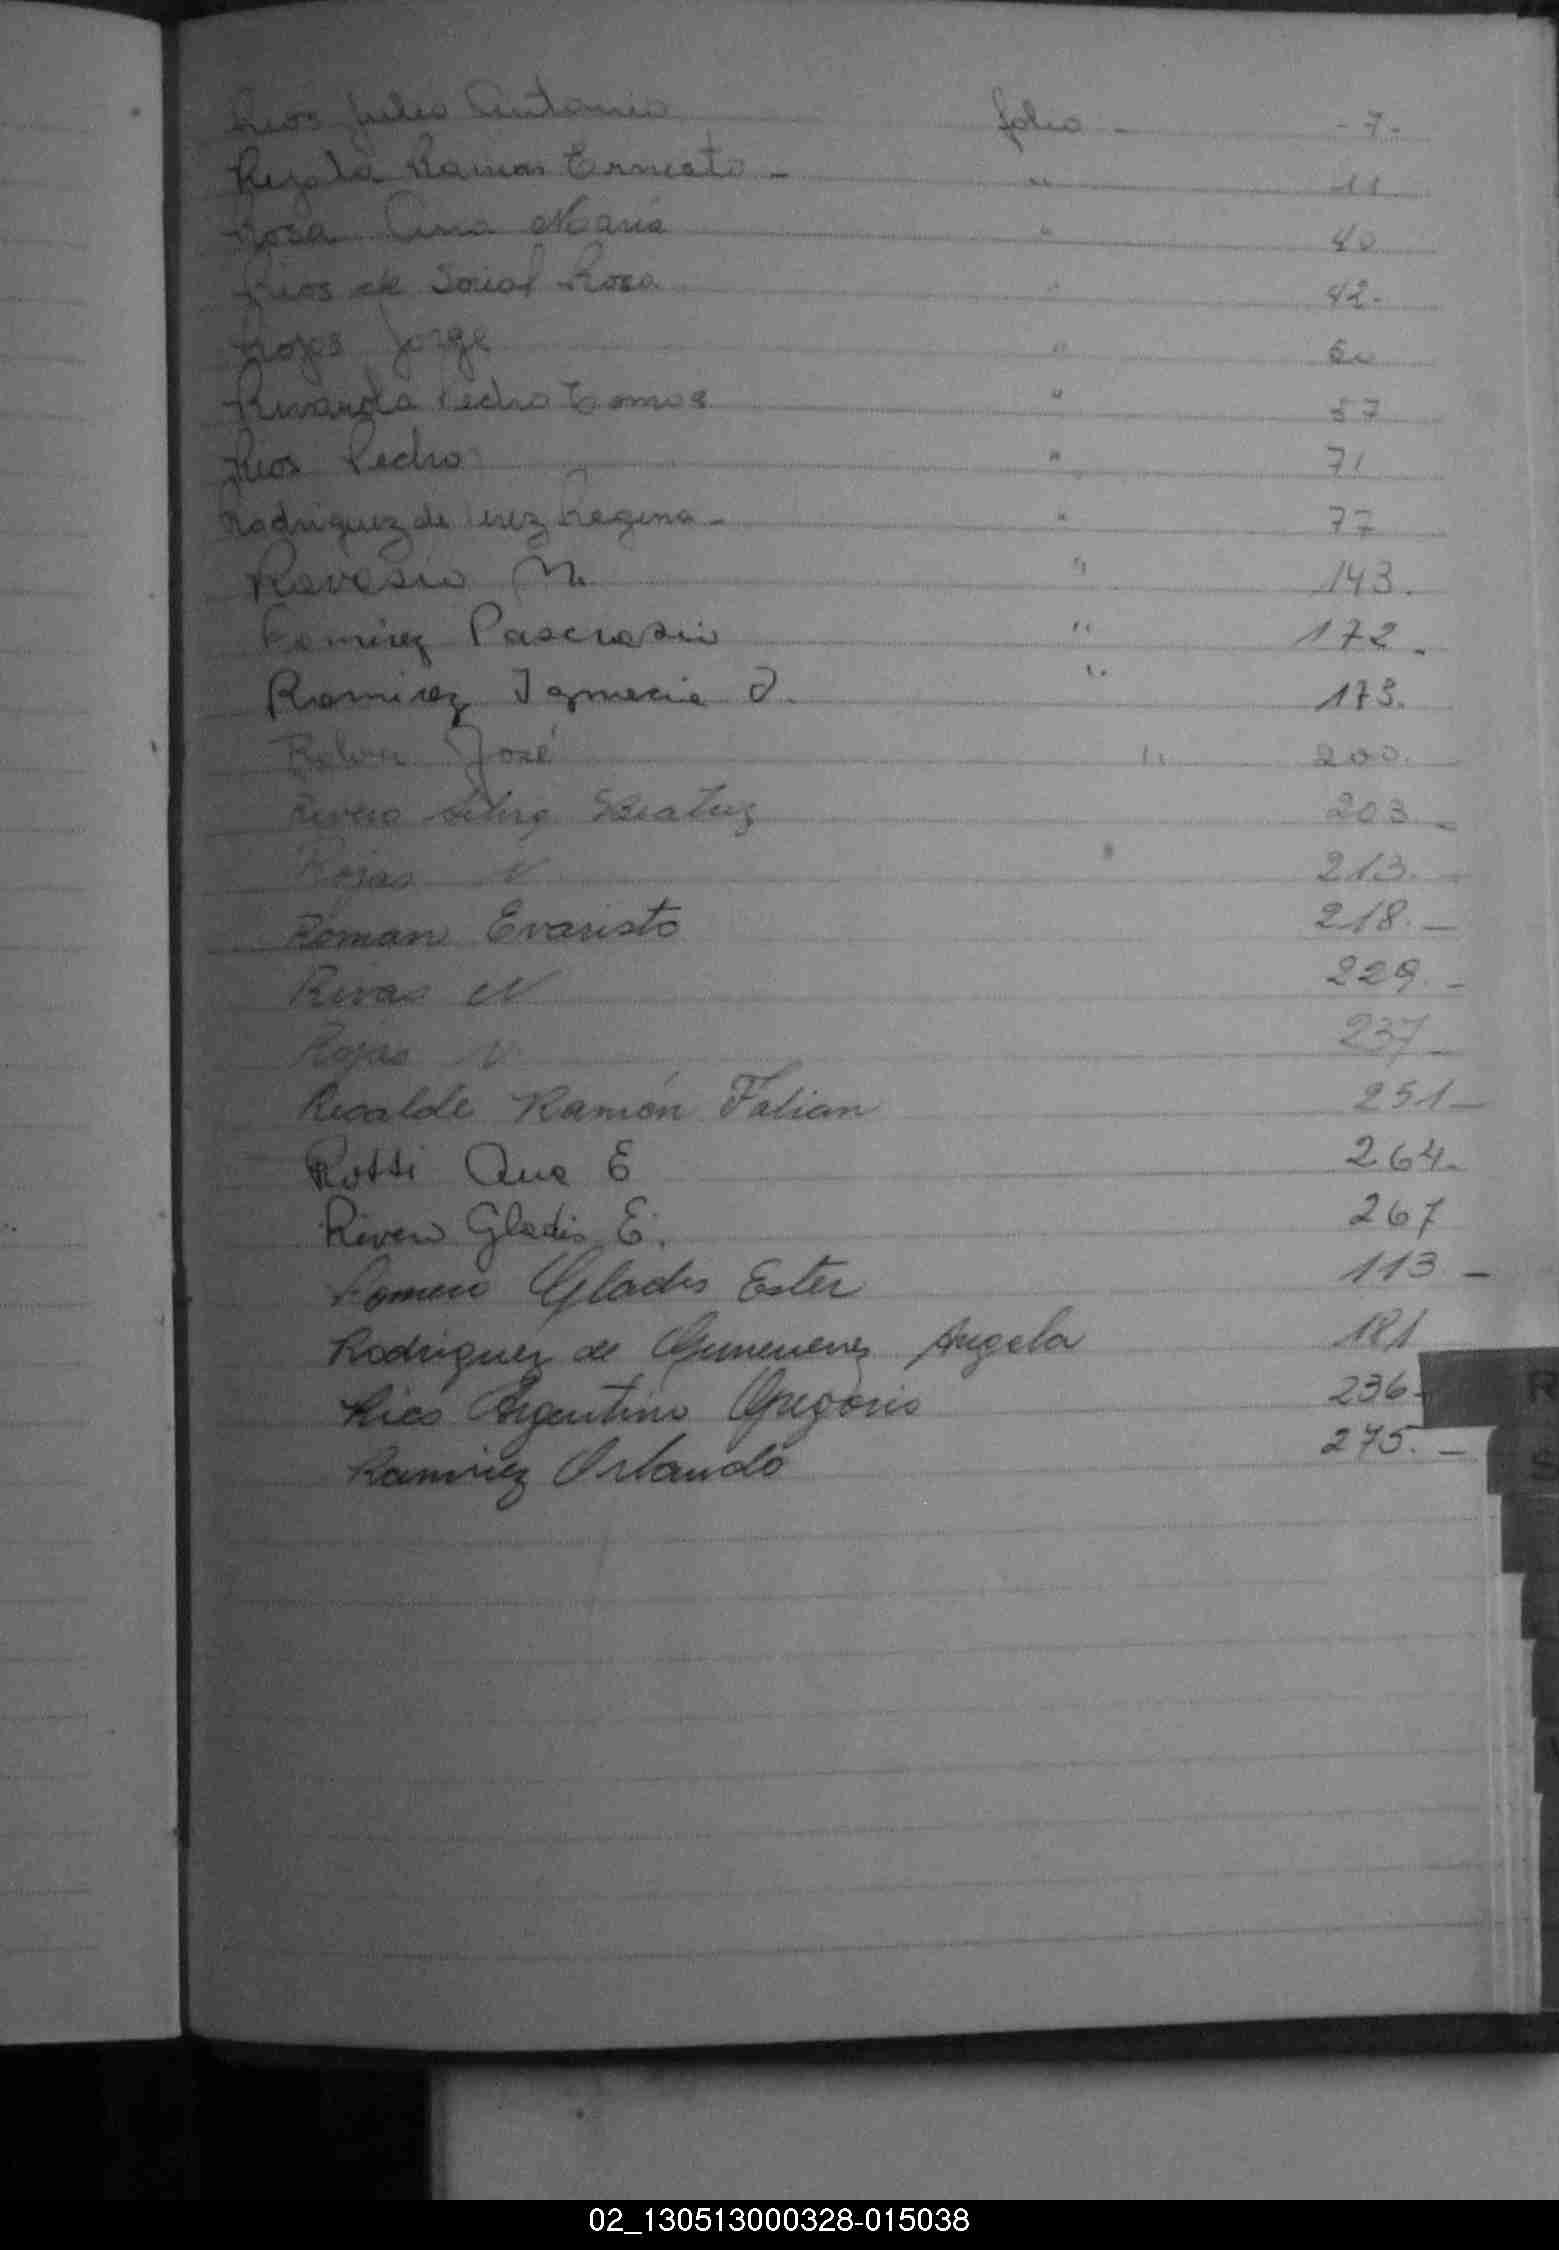 Rios Julio Antonio folio - - 7 -
Ramon Ernesto - " 11
Rosa Ana Maria " 40
Rios de Rosa " 42-
Rojas Jorge " 60
Rivarola Pedro Tomas " 57
Rios Pedro " 71
Rodriguez de Perez Regina - " 77
Ravasio N. " 143.
Ramirez Pascrasio " 172.
Ramirez Ignacia J. " 173.
José " 200.
Rivero Beatriz 203 -
Rojas N 213. -
Roman Evaristo 218. -
Rivas N 229. -
Rojas N. 237 -
Recalde Ramón Fabian 251 -
Rotti Ana E 264 -
Rivero Gladis E. 267
Romero Gladis Ester 113 -
Rodriguez de Angela 181
Rios Argentino Gregorio 236 -
Ramirez Orlando 275. -
R
S
02_130513000328-015038